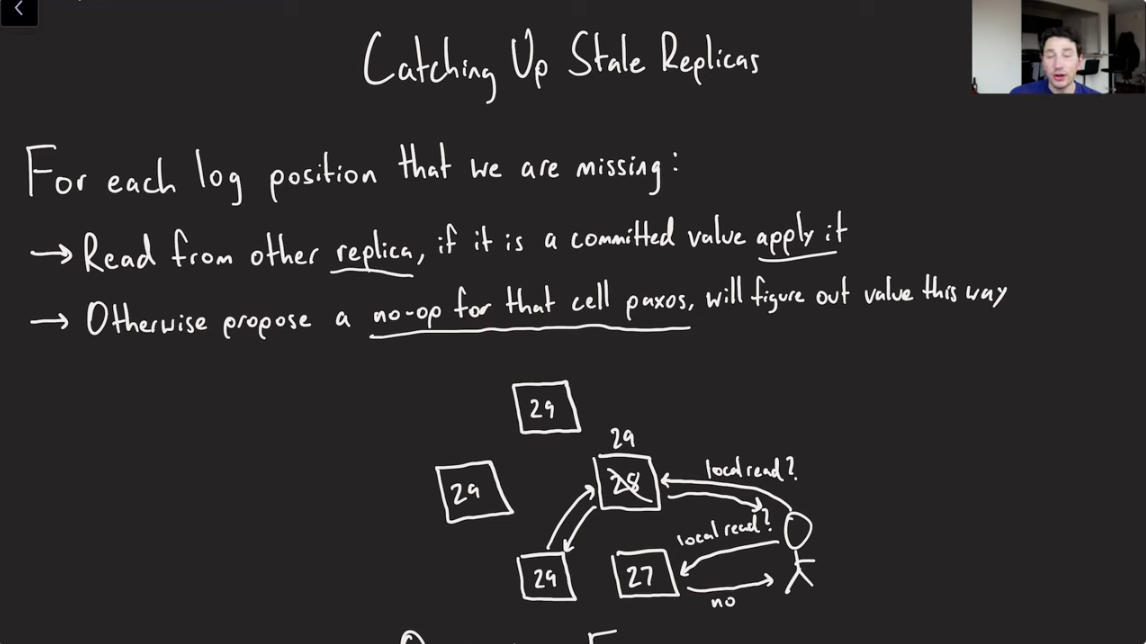 Catching Up Stale Replicas
For each log position that we are missing:
→ Read from other replica, if it is a committed value apply it
→ Otherwise propose a no-op for that cell paxos, will figure out value this way
29
29
29
28
local read?
local read?
29
27
no